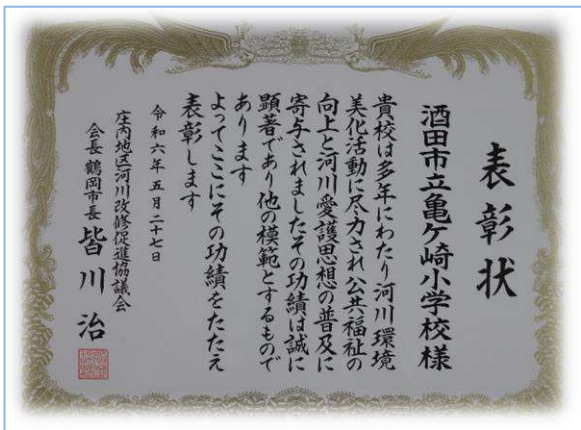 表彰状
酒田市立亀ケ崎小学校様
貴校は多年にわたり河川環境
美化活動に尽力され公共福祉の
向上と河川愛護思想の普及に
寄与されましたその功績は誠に
顕著であり他の模範とするもので
あります
よってここにその功績をたたえ
表彰します
令和六年五月二十七日
庄内地区河川改修促進協議会
会長 鶴岡市長 皆川 治